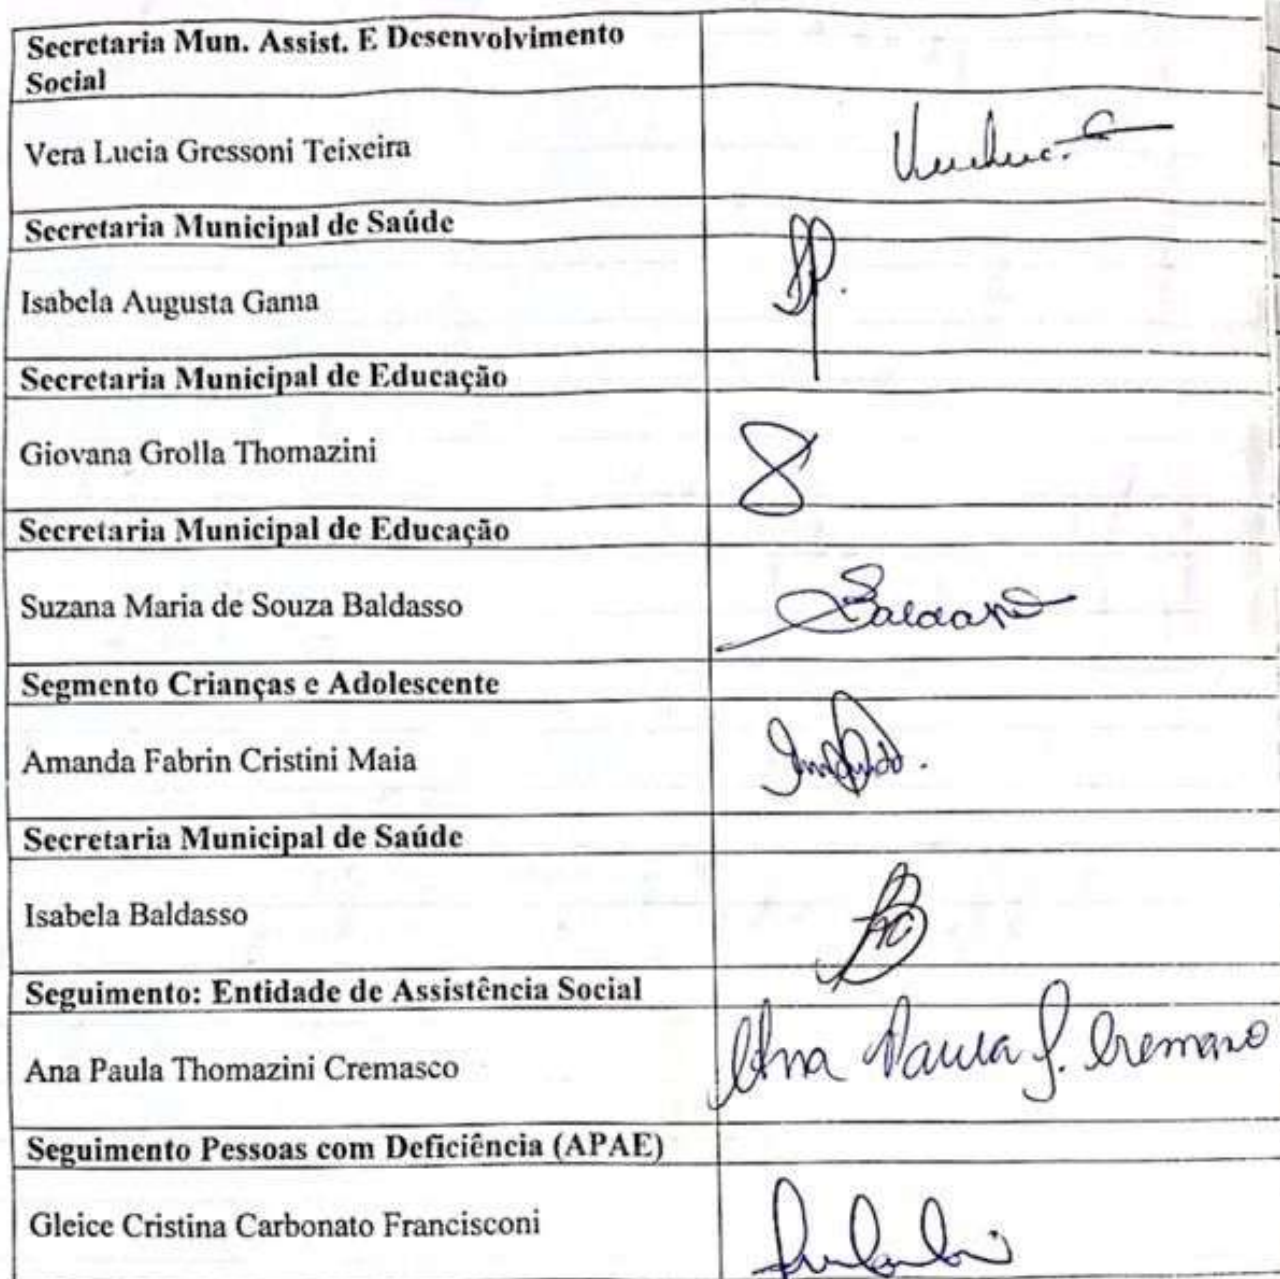 Secretaria Mun. Assist. E Desenvolvimento
Social
Vera Lucia Gressoni Teixeira
Secretaria Municipal de Saúde
Isabela Augusta Gama
Secretaria Municipal de Educação
Giovana Grolla Thomazini
Secretaria Municipal de Educação
Suzana Maria de Souza Baldasso
Baldasso
Segmento Crianças e Adolescente
Amanda Fabrin Cristini Maia
Secretaria Municipal de Saúde
Isabela Baldasso
Seguimento: Entidade de Assistência Social
Ana Paula Thomazini Cremasco
Ana Paula T. Cremasco
Seguimento Pessoas com Deficiência (APAE)
Gleice Cristina Carbonato Francisconi